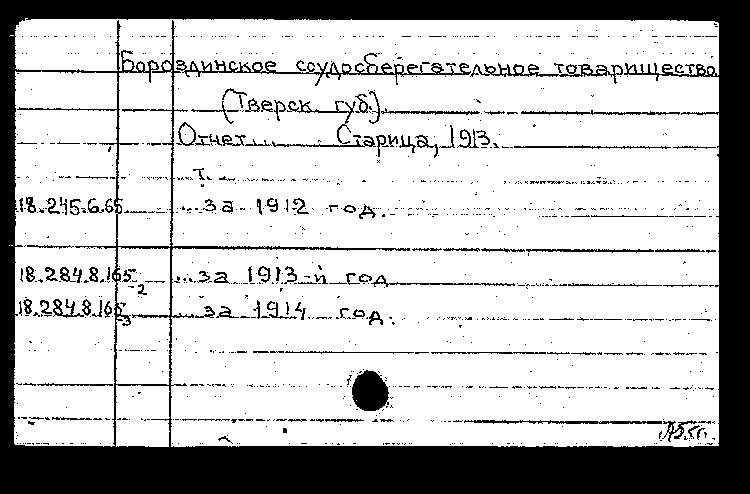 Бороздинское ссудосберегательное товарищество
(Тверск. губ.).
Отчет... Старица, 1913.
т.
18.245.6.65 ...за 1912 год.
18.284.8.165-2 ...за 1913-й год
18.284.8.165-3 ...за 1914 год.